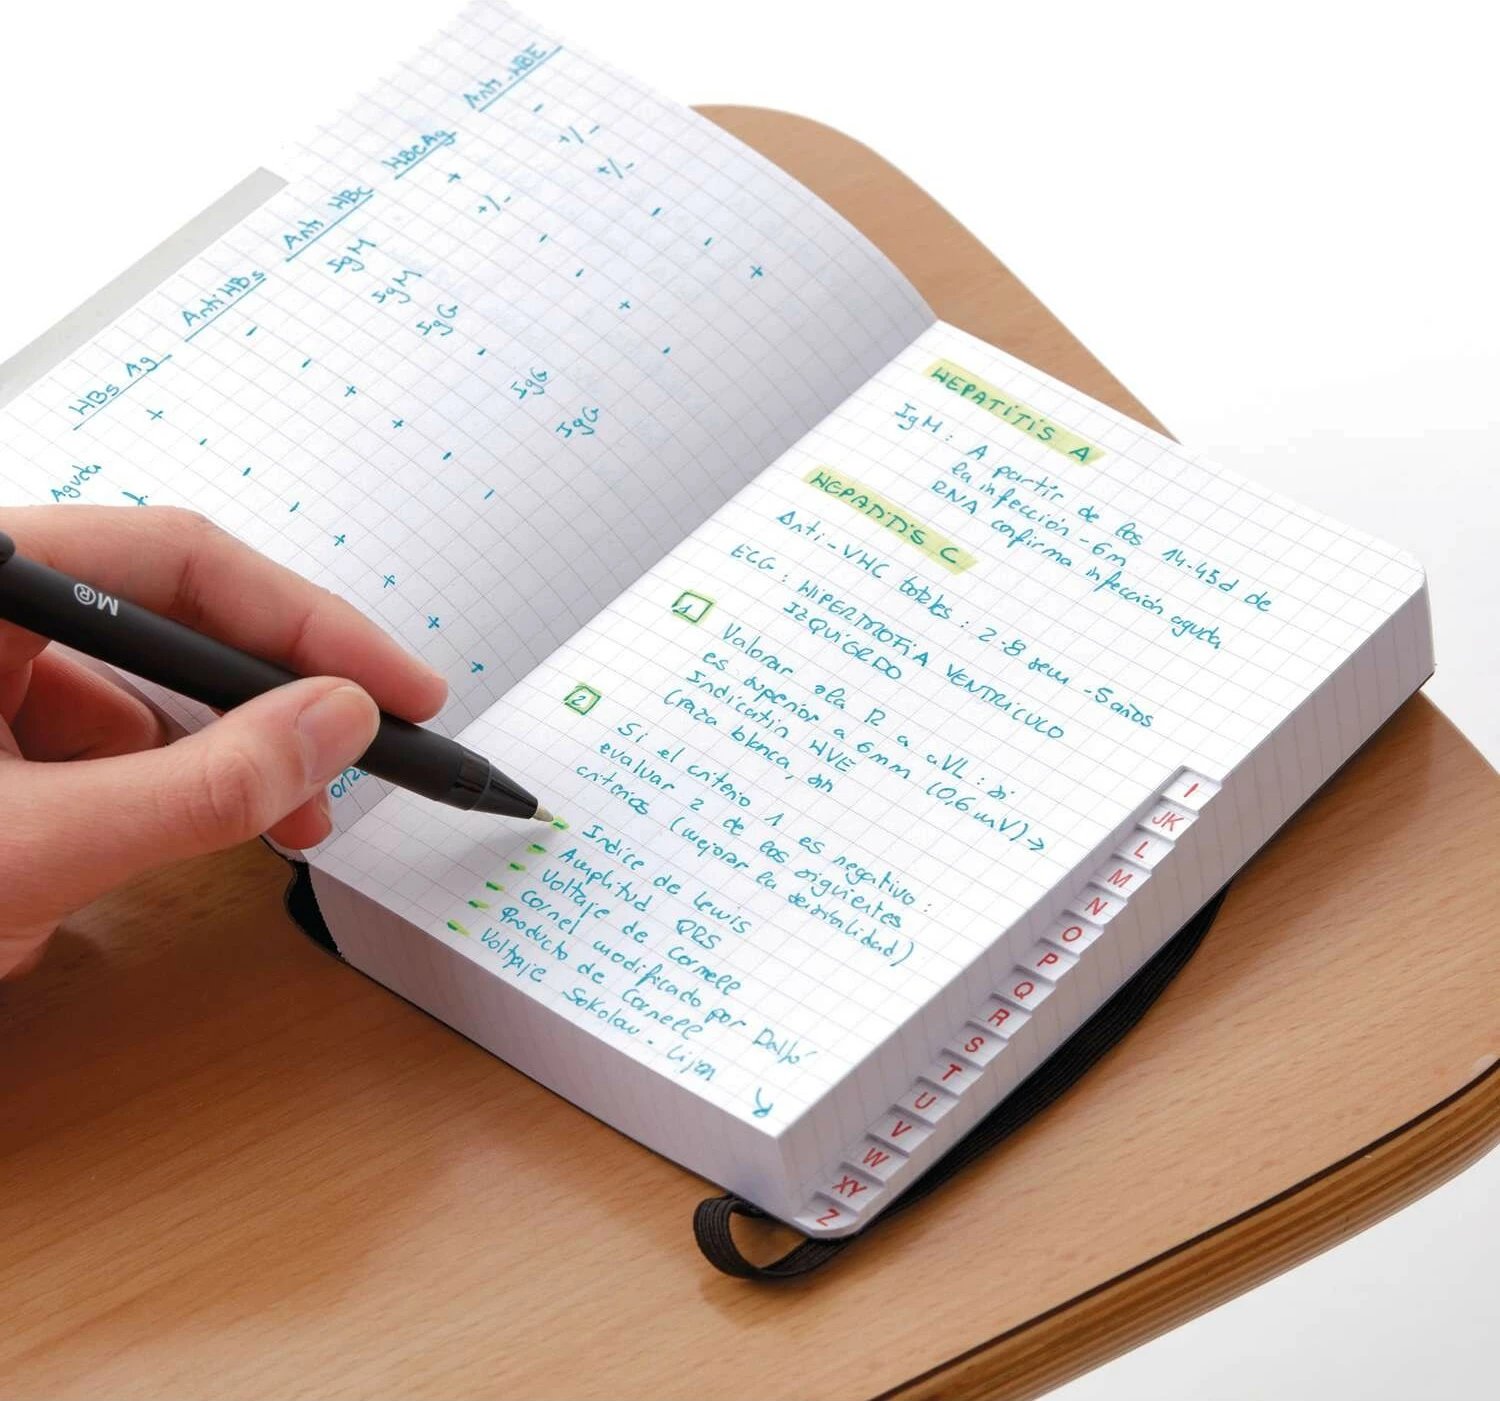 HBs Ag Anti HBs Anti HBc HBcAg Anti-HBE
Aguda + - IgM + -
- - IgM +/- +/-
- + IgG - +/-
- + - - -
+ - IgG + -
+ - IgG - +
+
+
HEPATITIS A
IgM: A partir de los 14-45d de
la infección - 6m
RNA confirma infección aguda
HEPATITIS C
Anti-VHC totales: 2-8 sem - 5 años
ECG: HIPERTROFIA VENTRICULO
IZQUIERDO
1 Valorar la R a aVL: si
es superior a 6mm (0,6 mV) →
Indicatiu HVE
(raza blanca,
2 Si el criterio 1 es negativo:
evaluar 2 de los siguientes
criterios (mejorar la sensibilidad)
- Indice de Lewis
- Amplitud QRS
- Voltaje de Cornell
- Cornel modificado por Dalfó
- Producto de Cornell
- Voltaje Sokolow - Lijon
I
JK
L
M
N
O
P
Q
R
S
T
U
V
W
XY
Z
M®